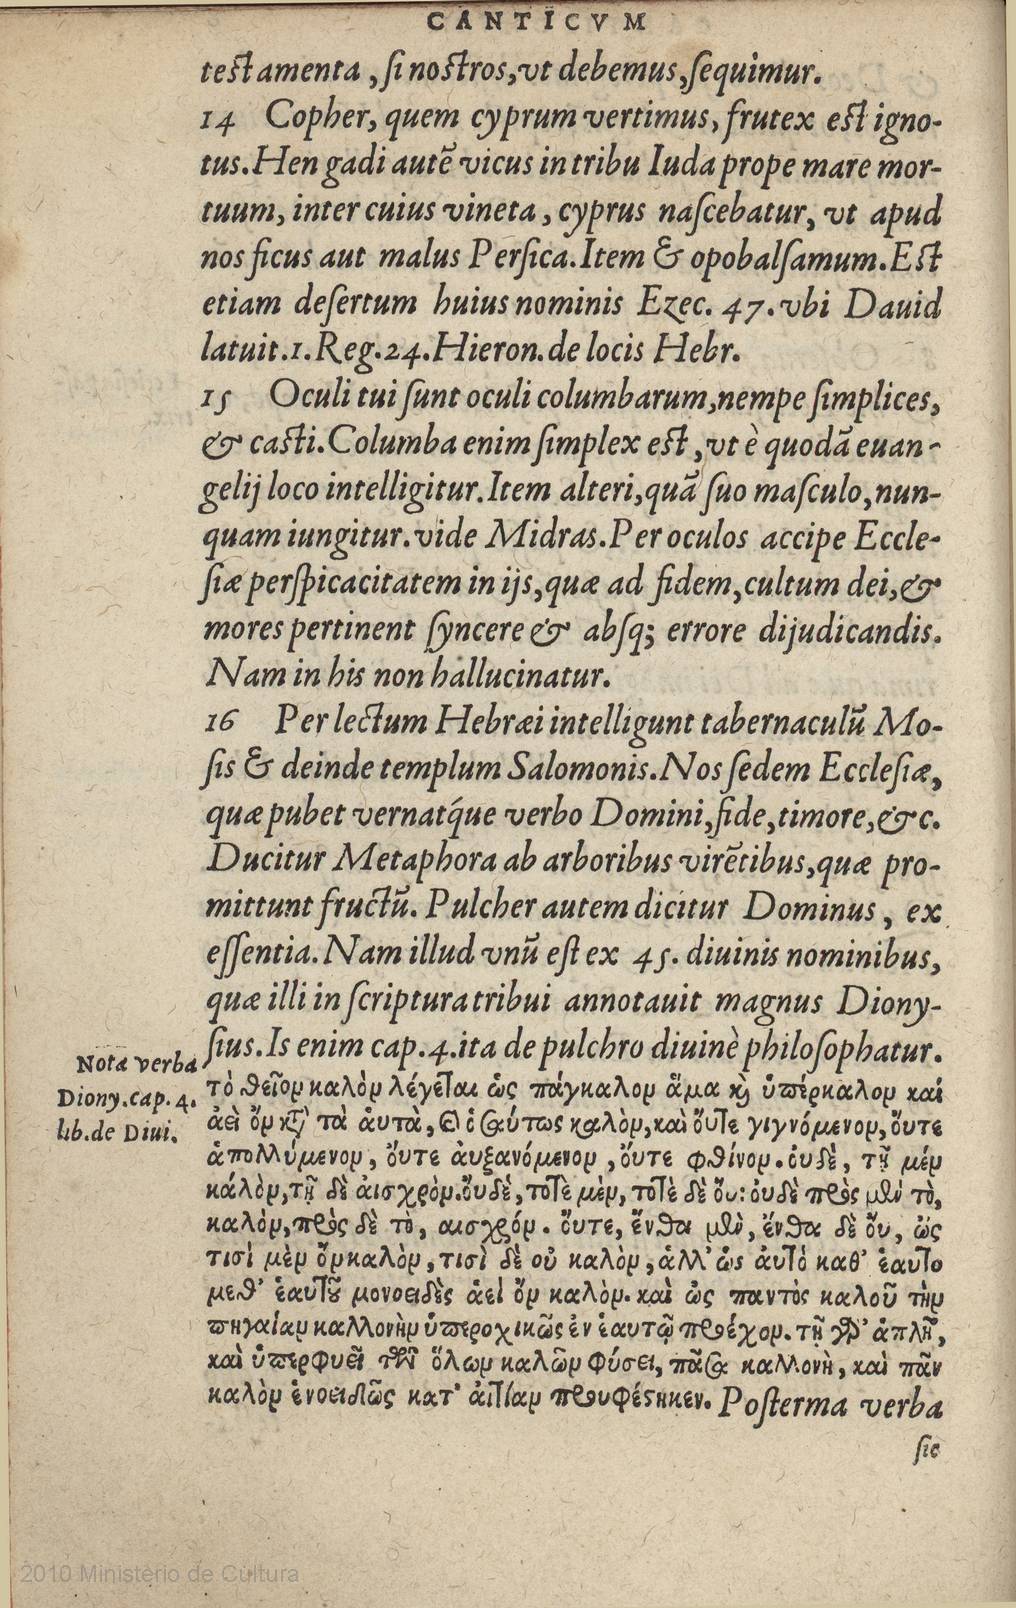 CANTICVM
testamenta, si nostros, vt debemus, sequimur.
14 Copher, quem cyprum vertimus, frutex est igno-
tus. Hen gadi autē vicus in tribu Iuda prope mare mor-
tuum, inter cuius vineta, cyprus nascebatur, vt apud
nos ficus aut malus Persica. Item & opobalsamum. Est
etiam desertum huius nominis Ezec. 47. vbi Dauid
latuit. 1. Reg. 24. Hieron. de locis Hebr.
15 Oculi tui sunt oculi columbarum, nempe simplices,
& casti. Columba enim simplex est, vt è quodā euan-
gelij loco intelligitur. Item alteri, quā suo masculo, nun-
quam iungitur. vide Midras. Per oculos accipe Eccle-
siæ perspicacitatem in ijs, quæ ad fidem, cultum dei, &
mores pertinent syncere & absq; errore dijudicandis.
Nam in his non hallucinatur.
16 Per lectum Hebræi intelligunt tabernaculū Mo-
sis & deinde templum Salomonis. Nos sedem Ecclesiæ,
quæ pubet vernatq́ue verbo Domini, fide, timore, &c.
Ducitur Metaphora ab arboribus virētibus, quæ pro-
mittunt fructū. Pulcher autem dicitur Dominus, ex
essentia. Nam illud vnū est ex 45. diuinis nominibus,
quæ illi in scriptura tribui annotauit magnus Diony-
sius. Is enim cap. 4. ita de pulchro diuinè philosophatur.
Nota verba
Diony. cap. 4.
lib. de Diui.
τὸ θεῖον καλὸν λέγεται ὡς πάγκαλον ἅμα κὶ ὑπέρκαλον καὶ
ἀεὶ ὂν κτ̀ τὰ ἀυτὰ, καὶ ὡσάυτως καλὸν, καὶ ὄυτε γιγνόμενον, ὄυτε
ἀπολλύμενον, ὄυτε ἀυξανόμενον, ὄυτε φθίνον. ὀυδὲ, τῆ μὲν
κάλὸν, τῆ δὲ ἀισχρὸν. ὀυδὲ, τοτὲ μὲν, τοτὲ δὲ ὂυ: ὀυδὲ πρὸς μὲν τὸ,
καλὸν, πρὸς δὲ τὸ, αισχρόν. ὄυτε, ἔνθα μὲν, ἔνθα δὲ ὂυ, ὡς
τισὶ μὲν ὂν καλὸν, τισὶ δὲ οὐ καλὸν, ἀλλ' ὡς ἀυτὸ καθ' ἑαυτο
μεθ' ἑαυτοῦ μονοειδὲς ἀεὶ ὂν καλὸν. καὶ ὡς παντὸς καλοῦ τὴν
πηγαίαν καλλονὴν ὑπεροχικῶς ἐν ἑαυτῷ προέχον. τῆ γὰρ ἁπλῆ,
καὶ ὑπερφυεῖ τῶν ὅλων καλῶν φύσει, πᾶσα καλλονὴ, καὶ πᾶν
καλὸν ἑνοειδῶς κατ' ἀιτίαν προυφέστηκεν. Posterma verba
sic
2010 Ministério de Cultura